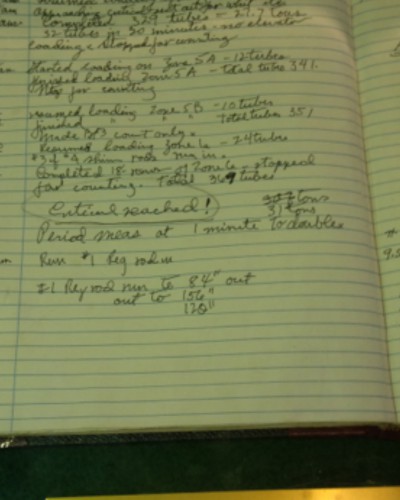 Completed 329 tubes = 21.7 tons
32 tubes in 20 minutes - no elevator
loading & stopped for counting
Started loading on Zone 5A - 12 tubes
Finished loading Zone 5A - total tubes 341.
Stop for counting
Resumed loading Zone 5B - 10 tubes
Finished " " Total tubes 351
count only.
Resumed loading Zone 6 - 24 tubes
#3 & #4 shim rods run in.
Completed 18 rows of Zone 6 - stopped
for counting. Total 369 tubes
Critical reached!
tons
31 tons
Period meas at 1 minute to double
Run #1 Reg rod in
#1 Reg rod run to 84" out
out to 156"
120"